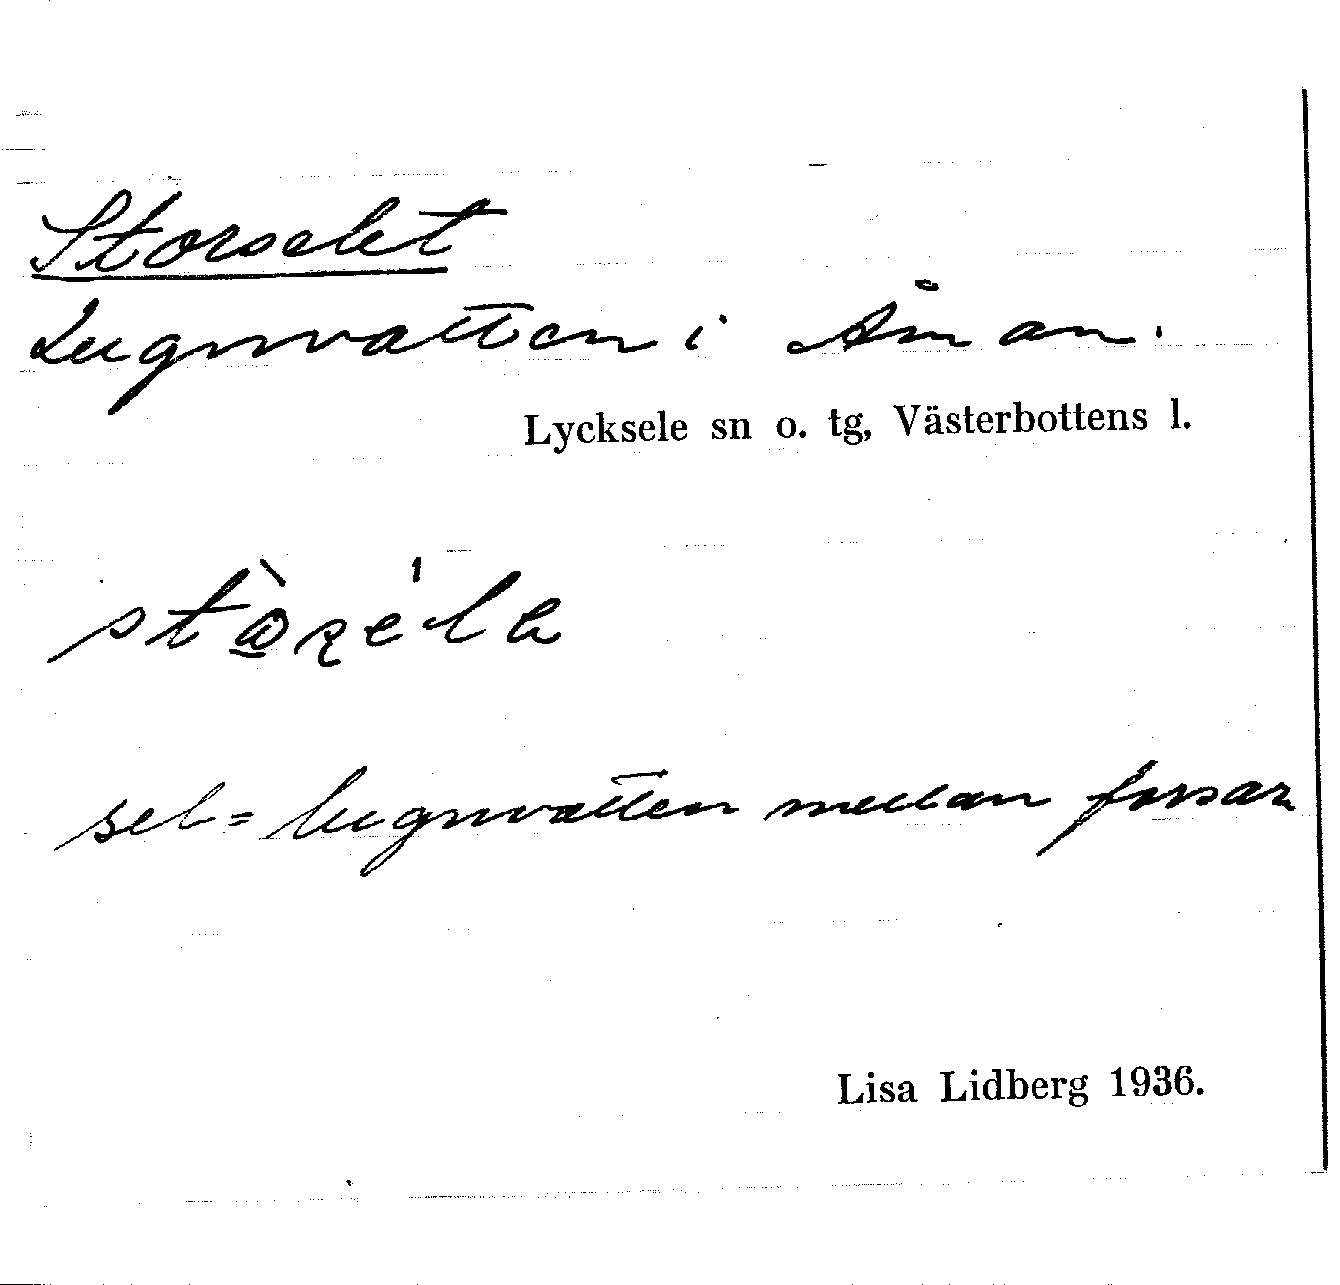 Storselet
Lugnvatten i Åman.
Lycksele sn o. tg, Västerbottens l.
sel = lugnvatten mellan forsar
Lisa Lidberg 1936.